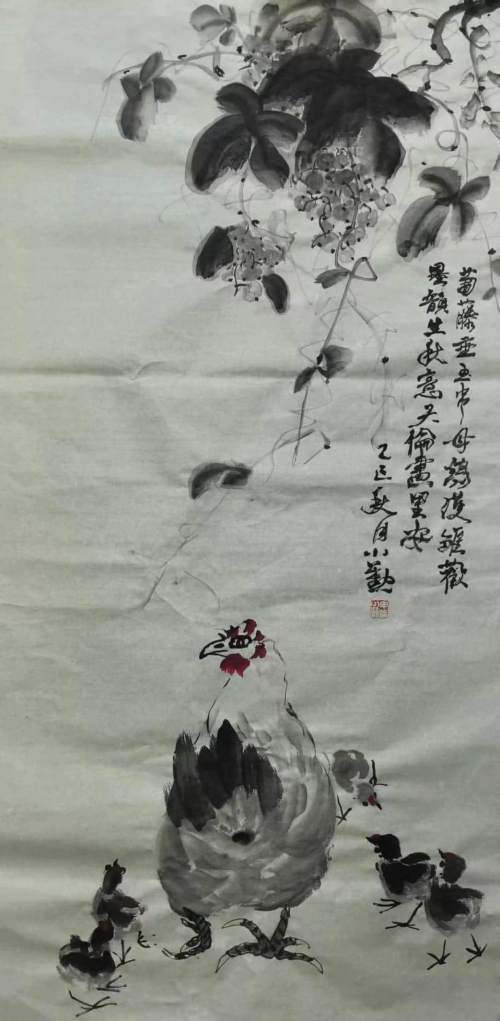 葡藤垂玉串母鸡护雏欢
墨韵生秋意天伦画里安
乙巳秋月小勤